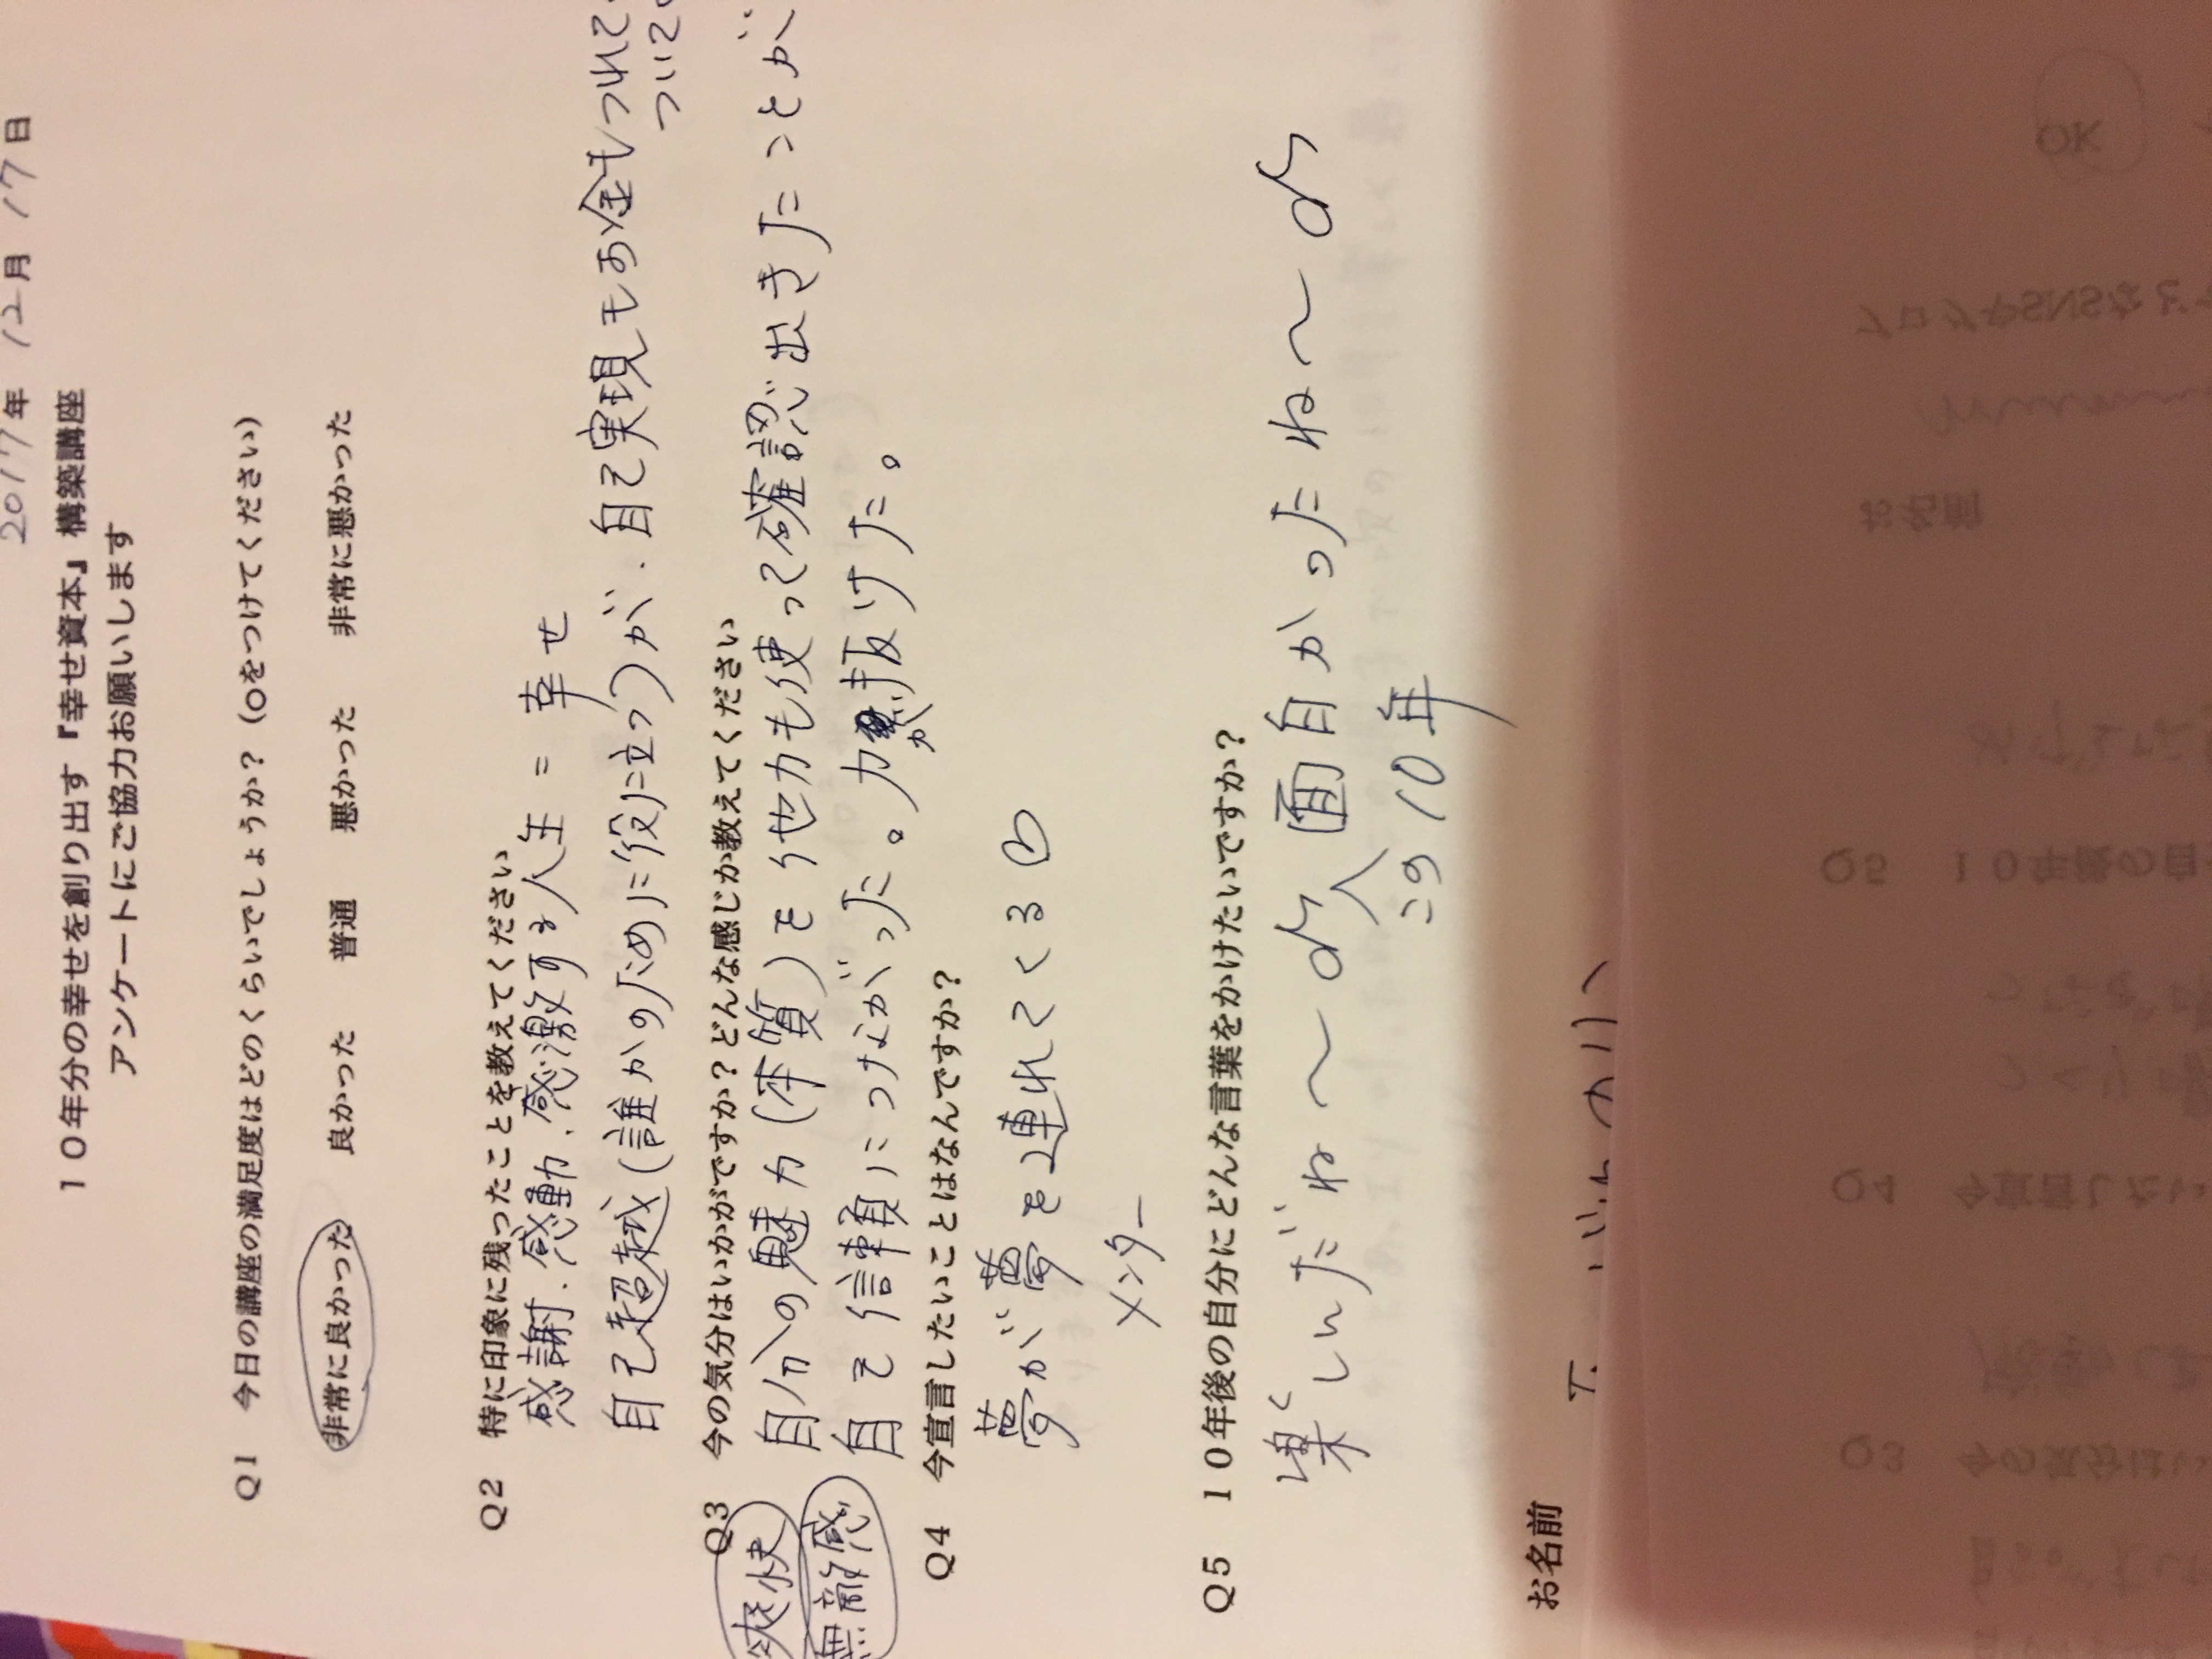 2017年 12月 17日
１０年分の幸せを創り出す『幸せ資本』構築講座
アンケートにご協力お願いします
Q1 今日の講座の満足度はどのくらいでしょうか？（○をつけてください）
非常に良かった 良かった 普通 悪かった 非常に悪かった
Q2 特に印象に残ったことを教えてください
感謝．感動．感激する人生＝幸せ
自己超越（誰かのために役に立つ）が．自己実現もお金もつれて
ついて
Q3 今の気分はいかがですか？どんな感じか教えてください
爽快
無敵感
自分の魅力（本質）を他力も使って確認出きたことが
自己信頼につながった。力が抜けた。
Q4 今宣言したいことはなんですか？
夢が夢を連れてくる♡
メンター
Q5 １０年後の自分にどんな言葉をかけたいですか？
楽しんだね〜♪面白かったね〜♪
この10年
お名前
T.
OK
ブログやSNSなど
お名前
Q5 １０年後の自
Q4 今宣言したい
Q3 今の気分はい